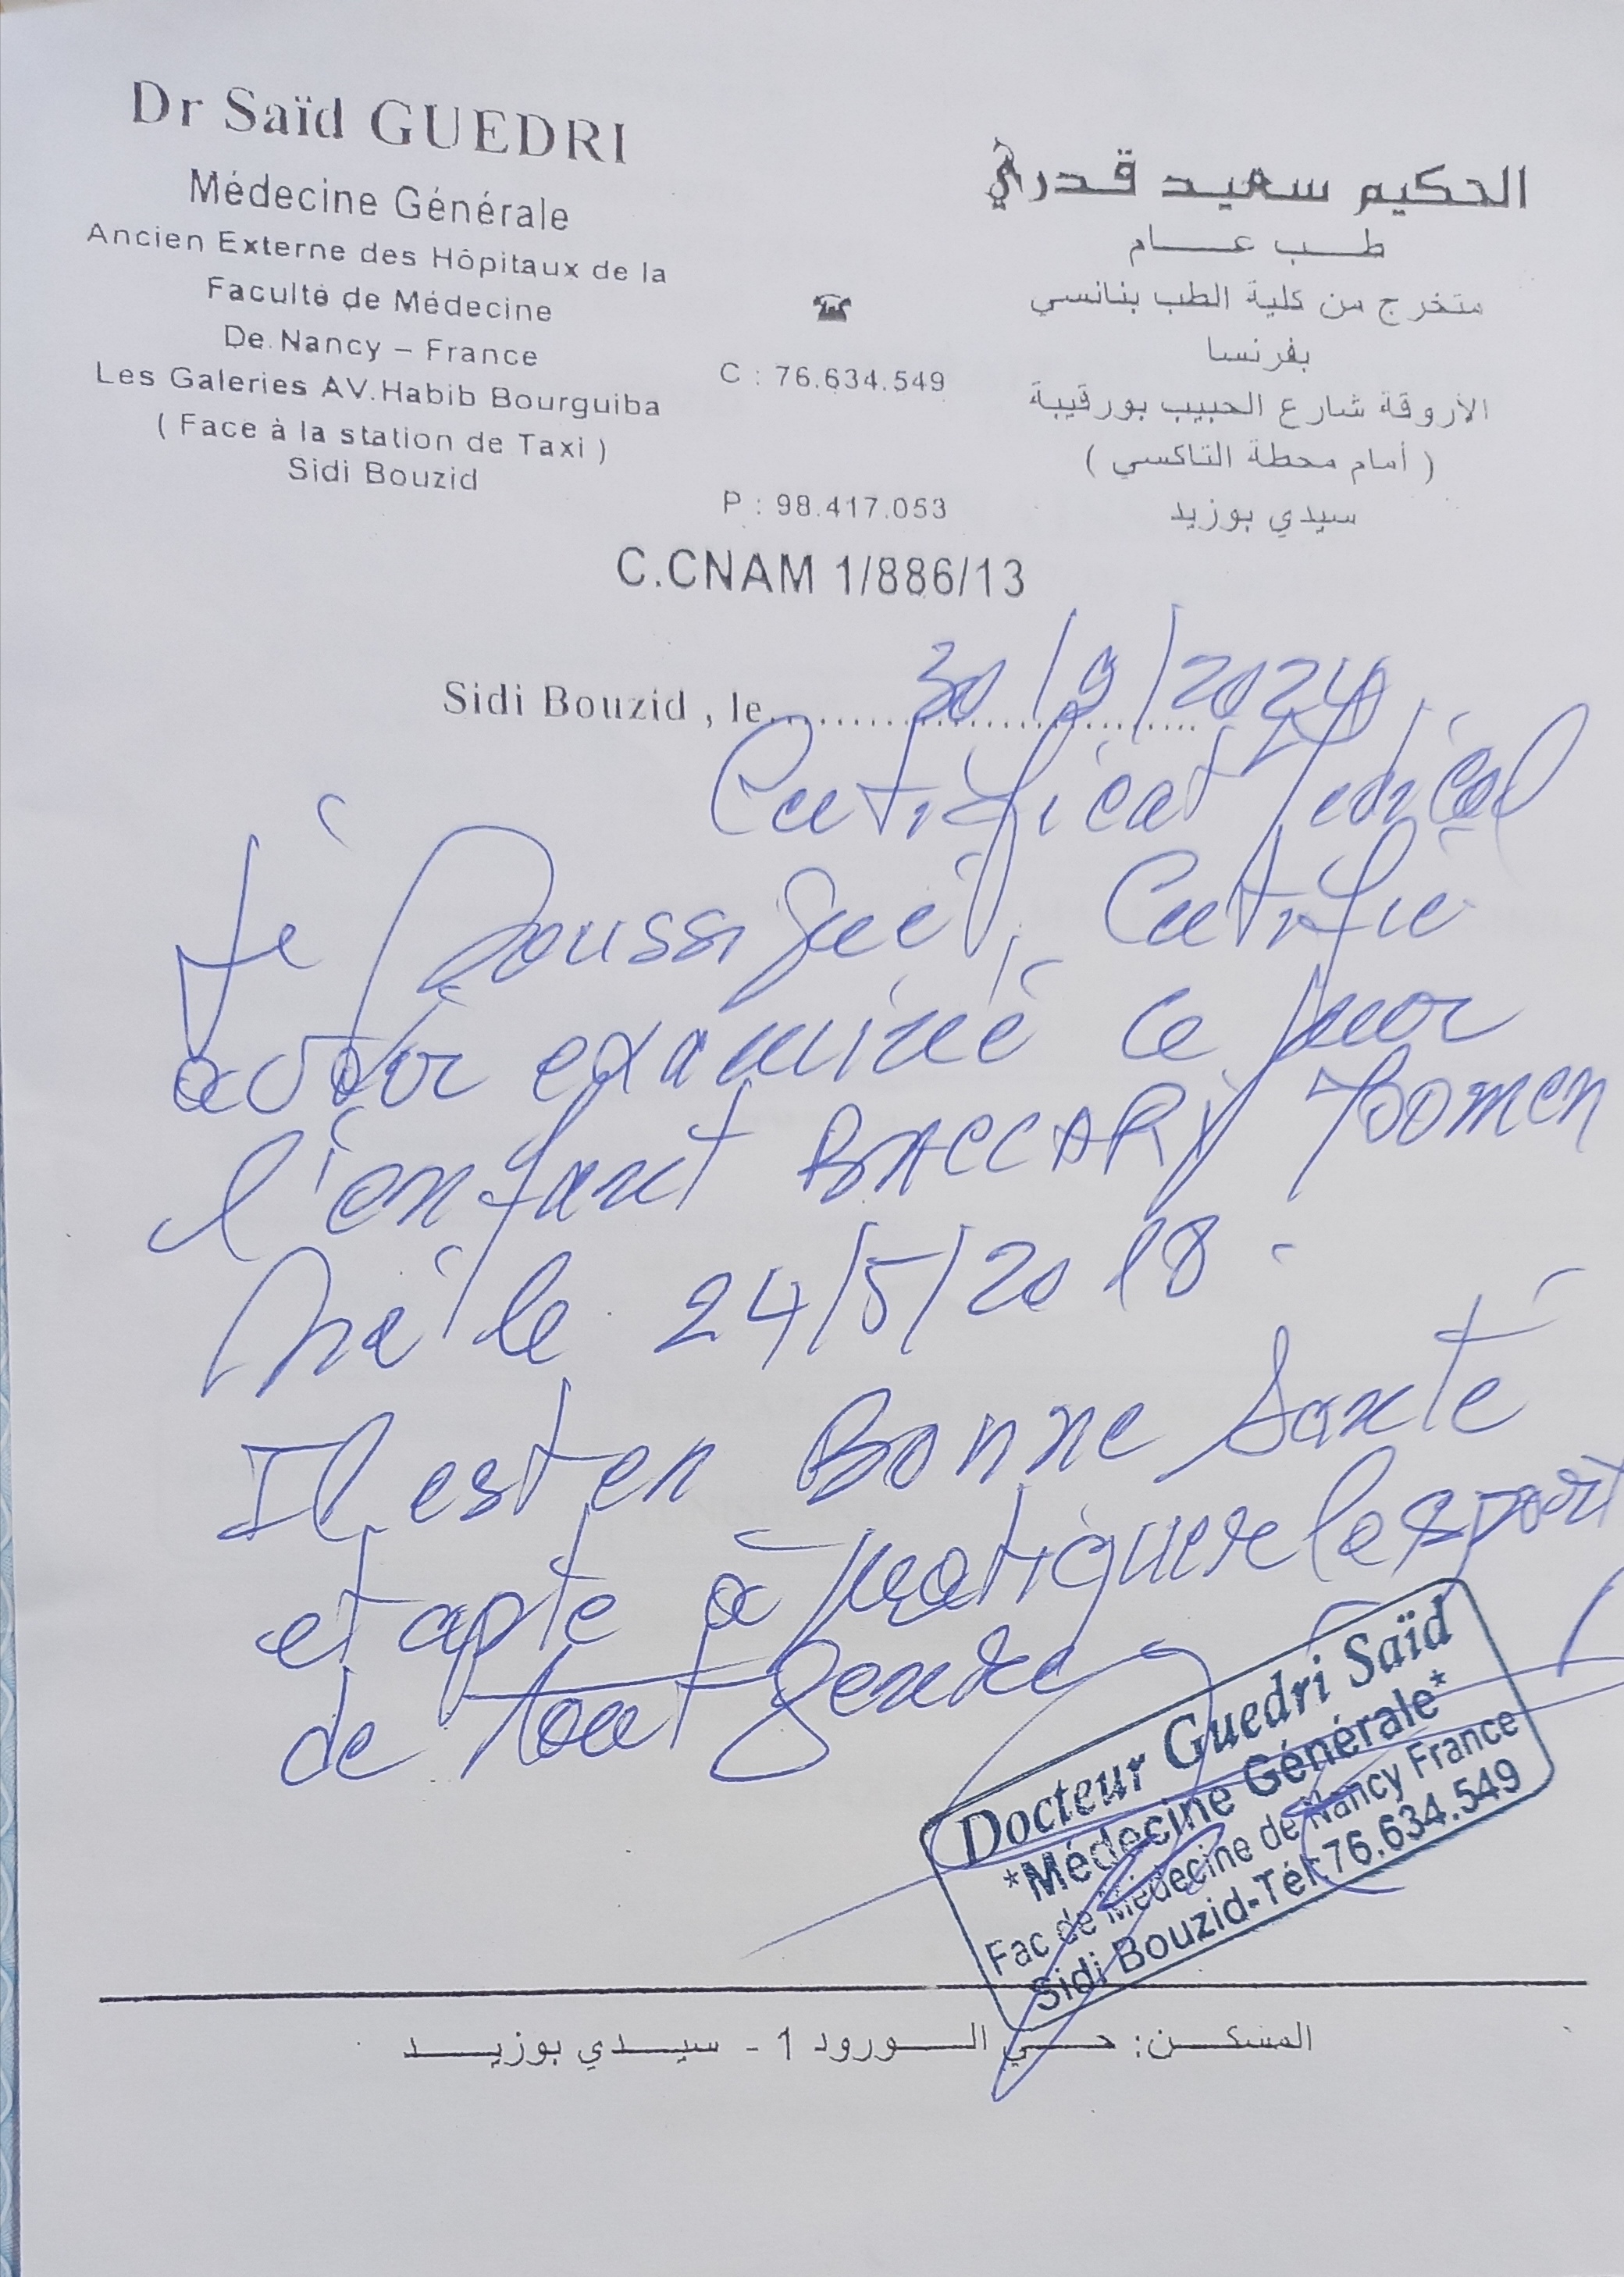 Dr Saïd GUEDRI
Médecine Générale
Ancien Externe des Hôpitaux de la
Faculté de Médecine
De Nancy – France
Les Galeries AV.Habib Bourguiba
( Face à la station de Taxi )
Sidi Bouzid
C : 76.634.549
P : 98.417.053
الحكيم سعيد قدري
طب عام
متخرج من كلية الطب بنانسي
بفرنسا
الأروقة شارع الحبيب بورقيبة
( أمام محطة التاكسي )
سيدي بوزيد
C.CNAM 1/886/13
Sidi Bouzid , le 30/9/2024
Certificat Medical
Je Soussigné, Certifie
avoir examiné ce jour
l'enfant BACCARI Moomen
né le 24/5/2018.
Il est en Bonne Santé
et apte à pratiquer le sport
de tout genre
Docteur Guedri Saïd
*Médecine Générale*
Fac de Médecine de Nancy France
Sidi Bouzid-Tél:76.634.549
المسكن: حي الورود 1 - سيدي بوزيد